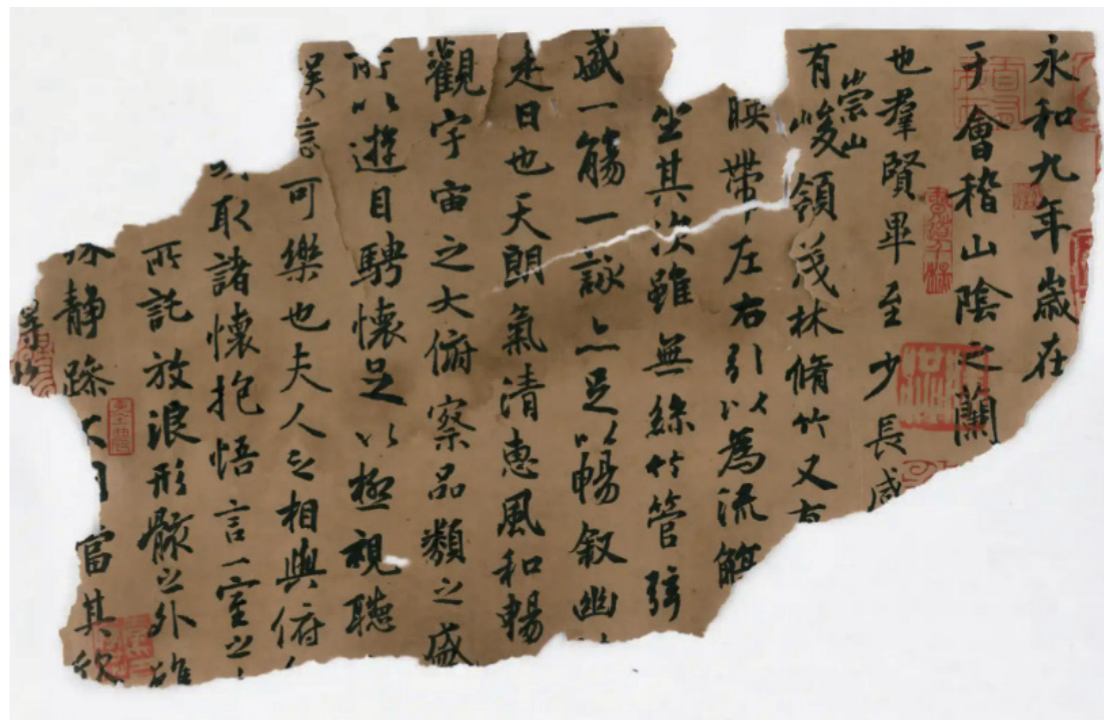 永和九年歲在
于會稽山陰之蘭
也羣賢畢至少長咸
有崇山峻領茂林脩竹又有
暎帶左右引以為流觴
坐其次雖無絲竹管弦
盛一觴一詠亦足以暢叙幽
是日也天朗氣清惠風和暢
觀宇宙之大俯察品類之盛
所以遊目騁懷足以極視聽
可樂也夫人之相與俯
取諸懷抱悟言一室之
所託放浪形骸之外雖
靜躁不同當其欣